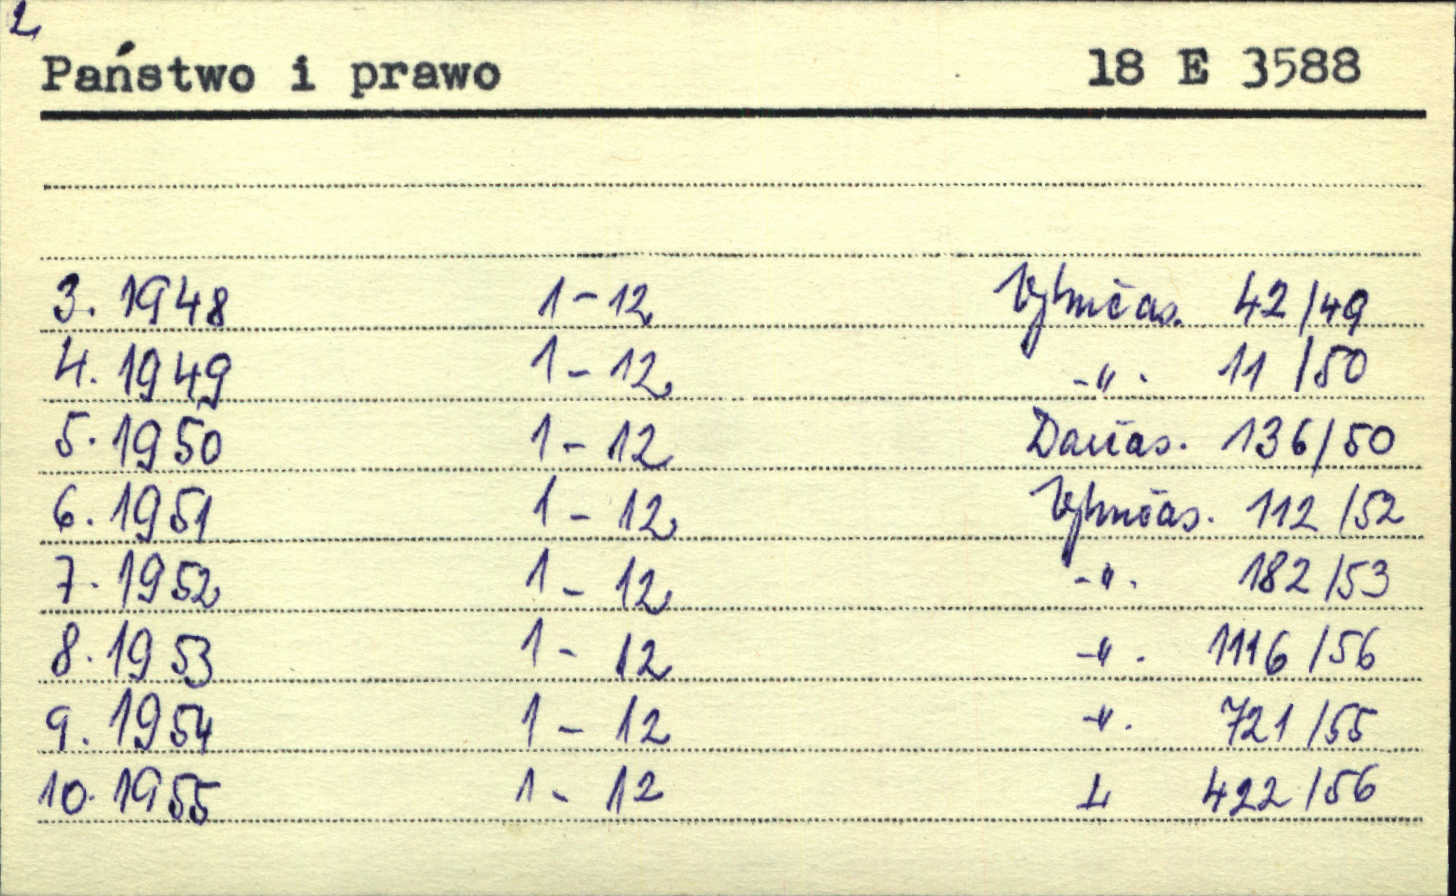 2
Państwo i prawo 18 E 3588
3. 1948 1-12 Výměčas. 42/49
4. 1949 1-12 -"- 11/50
5. 1950 1-12 Darčas. 136/50
6. 1951 1-12 Výměčas. 112/52
7. 1952 1-12 -"- 182/53
8. 1953 1-12 -"- 1116/56
9. 1954 1-12 -"- 721/55
10. 1955 1-12 L 422/56